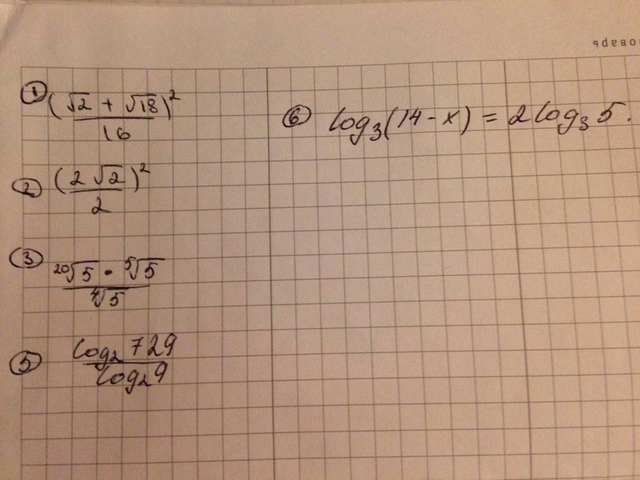 оварь
① (√2 + √18)² / 16
② (2√2)² / 2
③ ²⁰√5 · ⁵√5 / ⁴√5
⑤ log₂ 729 / log₂ 9
⑥ log₃(14 - x) = 2log₃5.